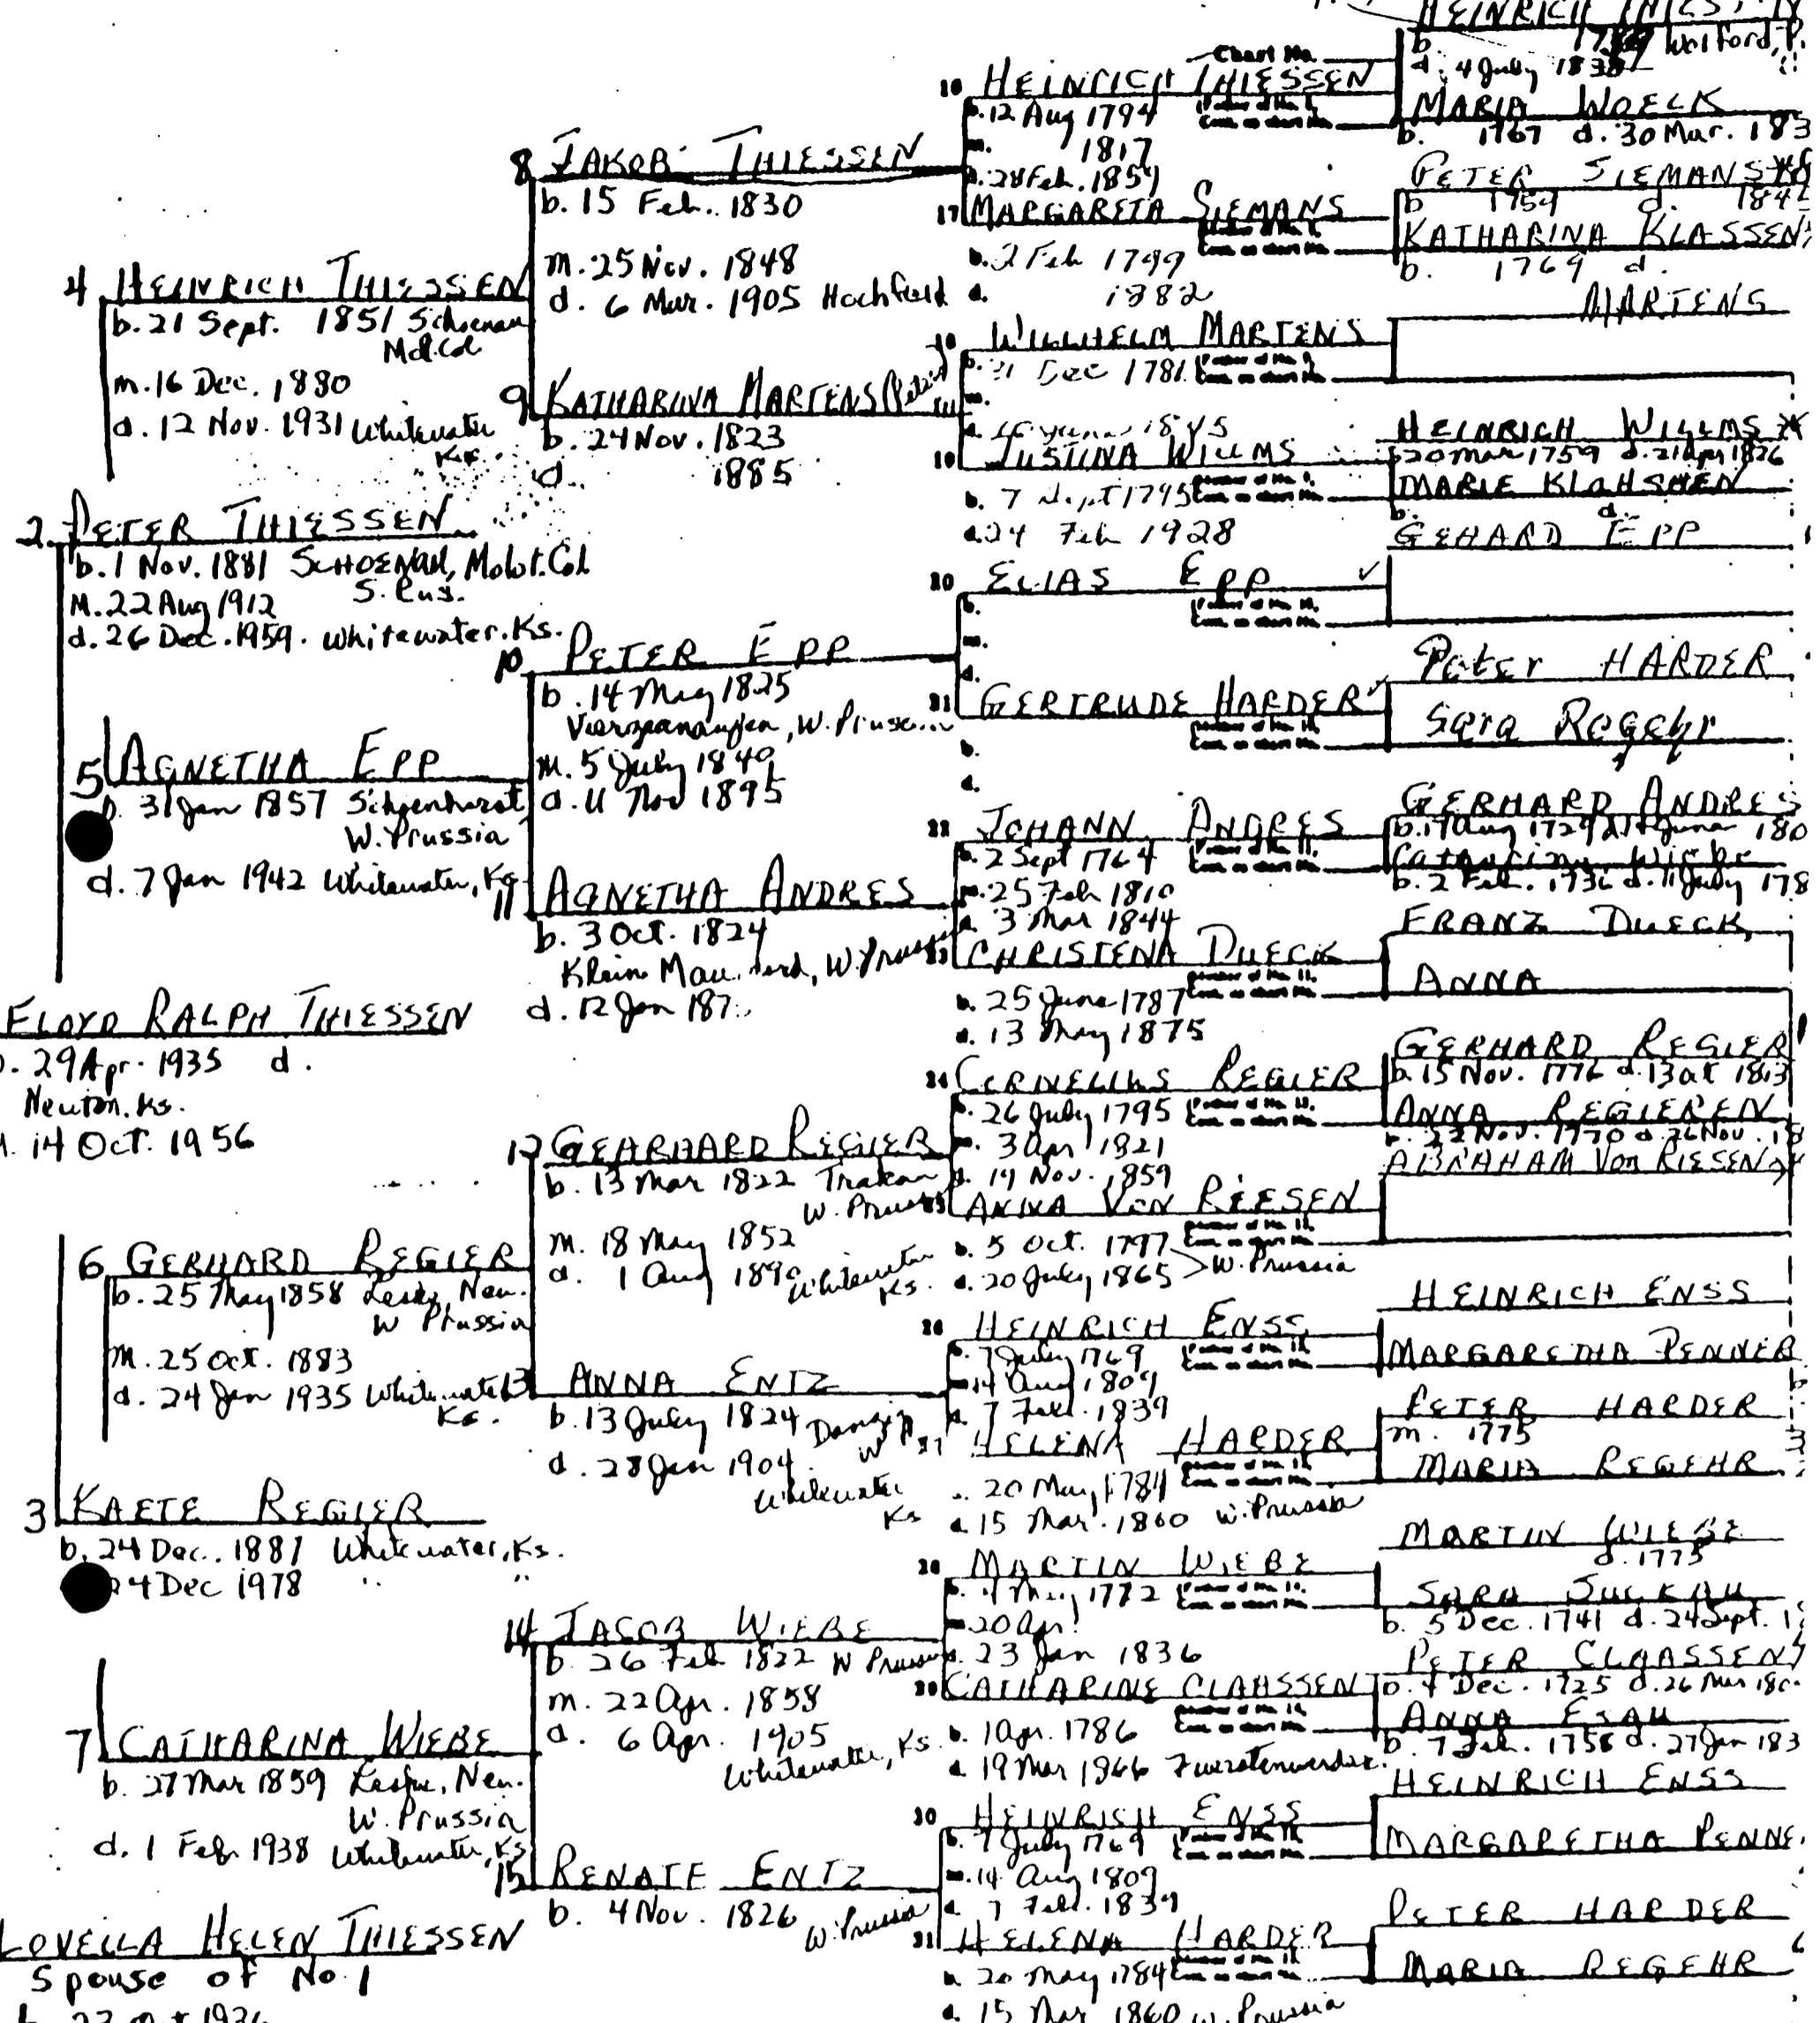 FLOYD RALPH THIESSEN
29 Apr. 1935 d.
Newton. Ks.
14 Oct. 1956
LOVELLA HELEN THIESSEN
Spouse of No. 1
2 PETER THIESSEN
b. 1 Nov. 1881 SCHOENAU, Molot. Col
S. Rus.
M. 22 Aug 1912
d. 26 Dec. 1959. Whitewater. Ks.
3 KAETE REGIER
b. 24 Dec. 1881 Whitewater, Ks.
4 Dec 1978 " "
4 HEINRICH THIESSEN
b. 21 Sept. 1851 Schoenau
Mol. Col
m. 16 Dec. 1880
d. 12 Nov. 1931 Whitewater
Ks.
5 AGNETHA EPP
b. 31 Jan 1857 Schoenhorst
W. Prussia
d. 7 Jan 1942 Whitewater, Ks
6 GERHARD REGIER
b. 25 May 1858 Neu.
W Prussia
m. 25 Oct. 1883
d. 24 Jan 1935 Whitewater
Ks.
7 CATHARINA WIEBE
b. 27 Mar 1859 Neu.
W. Prussia
d. 1 Feb 1938 Whitewater, Ks
8 JAKOB THIESSEN
b. 15 Feb. 1830
m. 25 Nov. 1848
d. 6 Mar. 1905 Hochfield
9 KATHARINA MARTENS
b. 24 Nov. 1823
d. 1885
10 PETER EPP
b. 14 May 1825
W. Pruss
m. 5 July 1849
d. 11 Nov 1895
11 AGNETHA ANDRES
b. 3 Oct. 1824
Klein W. Pruss
d. 12 Jan 187
12 GEARHARD REGIER
b. 13 Mar 1822
W. Pruss
m. 18 May 1852
d. 1 Aug 1890 Whitewater
Ks.
13 ANNA ENTZ
b. 13 July 1824 Danzig
W P
d. 28 Jan 1904
Whitewater
Ks
14 JACOB WIEBE
b. 26 Feb 1822 W Prussia
m. 22 Apr. 1858
d. 6 Apr. 1905
Whitewater, Ks.
15 RENATE ENTZ
b. 4 Nov. 1826
W. Prussia
Chart No.
16 HEINRICH THIESSEN
b. 12 Aug 1794
m. 1817
d. 28 Feb. 1859
17 MARGARETA SIEMANS
b. 2 Feb 1799
d. 1882
WILLHELM MARTENS
Dec 1781
1845
19 JUSTINA WILLMS
b. 7 Sept 1795
d. 24 Feb 1928
20 ELIAS EPP ✓
b.
m.
d.
21 GERTRUDE HARDER ✓
b.
d.
22 JOHANN ANDRES
b. 2 Sept 1764
m. 25 Feb 1810
d. 3 Mar 1844
23 CHRISTENA DUECK
b. 25 June 1787
d. 13 May 1875
24 CORNELIUS REGIER
b. 26 July 1795
m. 3 Apr 1821
d. 19 Nov. 1859
25 ANNA VON RIESEN
b. 5 Oct. 1797
d. 20 July 1865 > W. Prussia
26 HEINRICH ENSS
b. 7 July 1769
m. 14 Aug 1809
d. 7 Feb. 1839
27 HELENA HARDER
20 May 1784
d. 15 Mar. 1860 W. Prussia
28 MARTIN WIEBE
b. 4 May 1772
m. 20 Apr
d. 23 Jan 1836
29 CATHARINE CLAHSSEN
b. 1 Apr. 1786
d. 19 Mar 1866 Fuerstenwerder.
30 HEINRICH ENSS
b. 7 July 1769
m. 14 Aug 1809
d. 7 Feb. 1839
31 HELENA HARDER
b. 20 May 1784
d. 15 Mar 1860 W. Prussia
HEINRICH
b.
d. 4 July
MARIA WOELK
b. 1767 d. 30 Mar. 183
PETER SIEMANS
b 1759 d. 184
KATHARINA KLASSEN
b. 1769 d.
MARTENS
HEINRICH WILLMS
b 20 Mar 1759 d. 21 Apr 1826
MARIE KLAHSMEN
b. d.
GEHARD EPP
Peter HARDER
Sara Regehr
GERHARD ANDRES
b. 17 Aug 1729 June 180
b. 2 Feb. 1736 d. 11 July 178
FRANZ DUECK,
ANNA
GERHARD REGIER
b. 15 Nov. 1776 d. 13 Oct 1813
ANNA REGIEREN
b. 22 Nov. 1770 d. 26 Nov. 18
ABRAHAM Von RIESEN
HEINRICH ENSS
MARGARETHA PENNER
PETER HARDER
m. 1775
MARIA REGEHR
MARTIN WIEBE
d. 1775
SARA SUCKAU
b. 5 Dec. 1741 d. 24 Sept. 1
PETER CLAASSEN
b. 4 Dec. 1725 d. 26 Mar 180
ANNA ESAU
b. 7 Feb. 1758 d. 27 Jan 183
HEINRICH ENSS
MARGARETHA PENNE
PETER HARDER
MARIA REGEHR